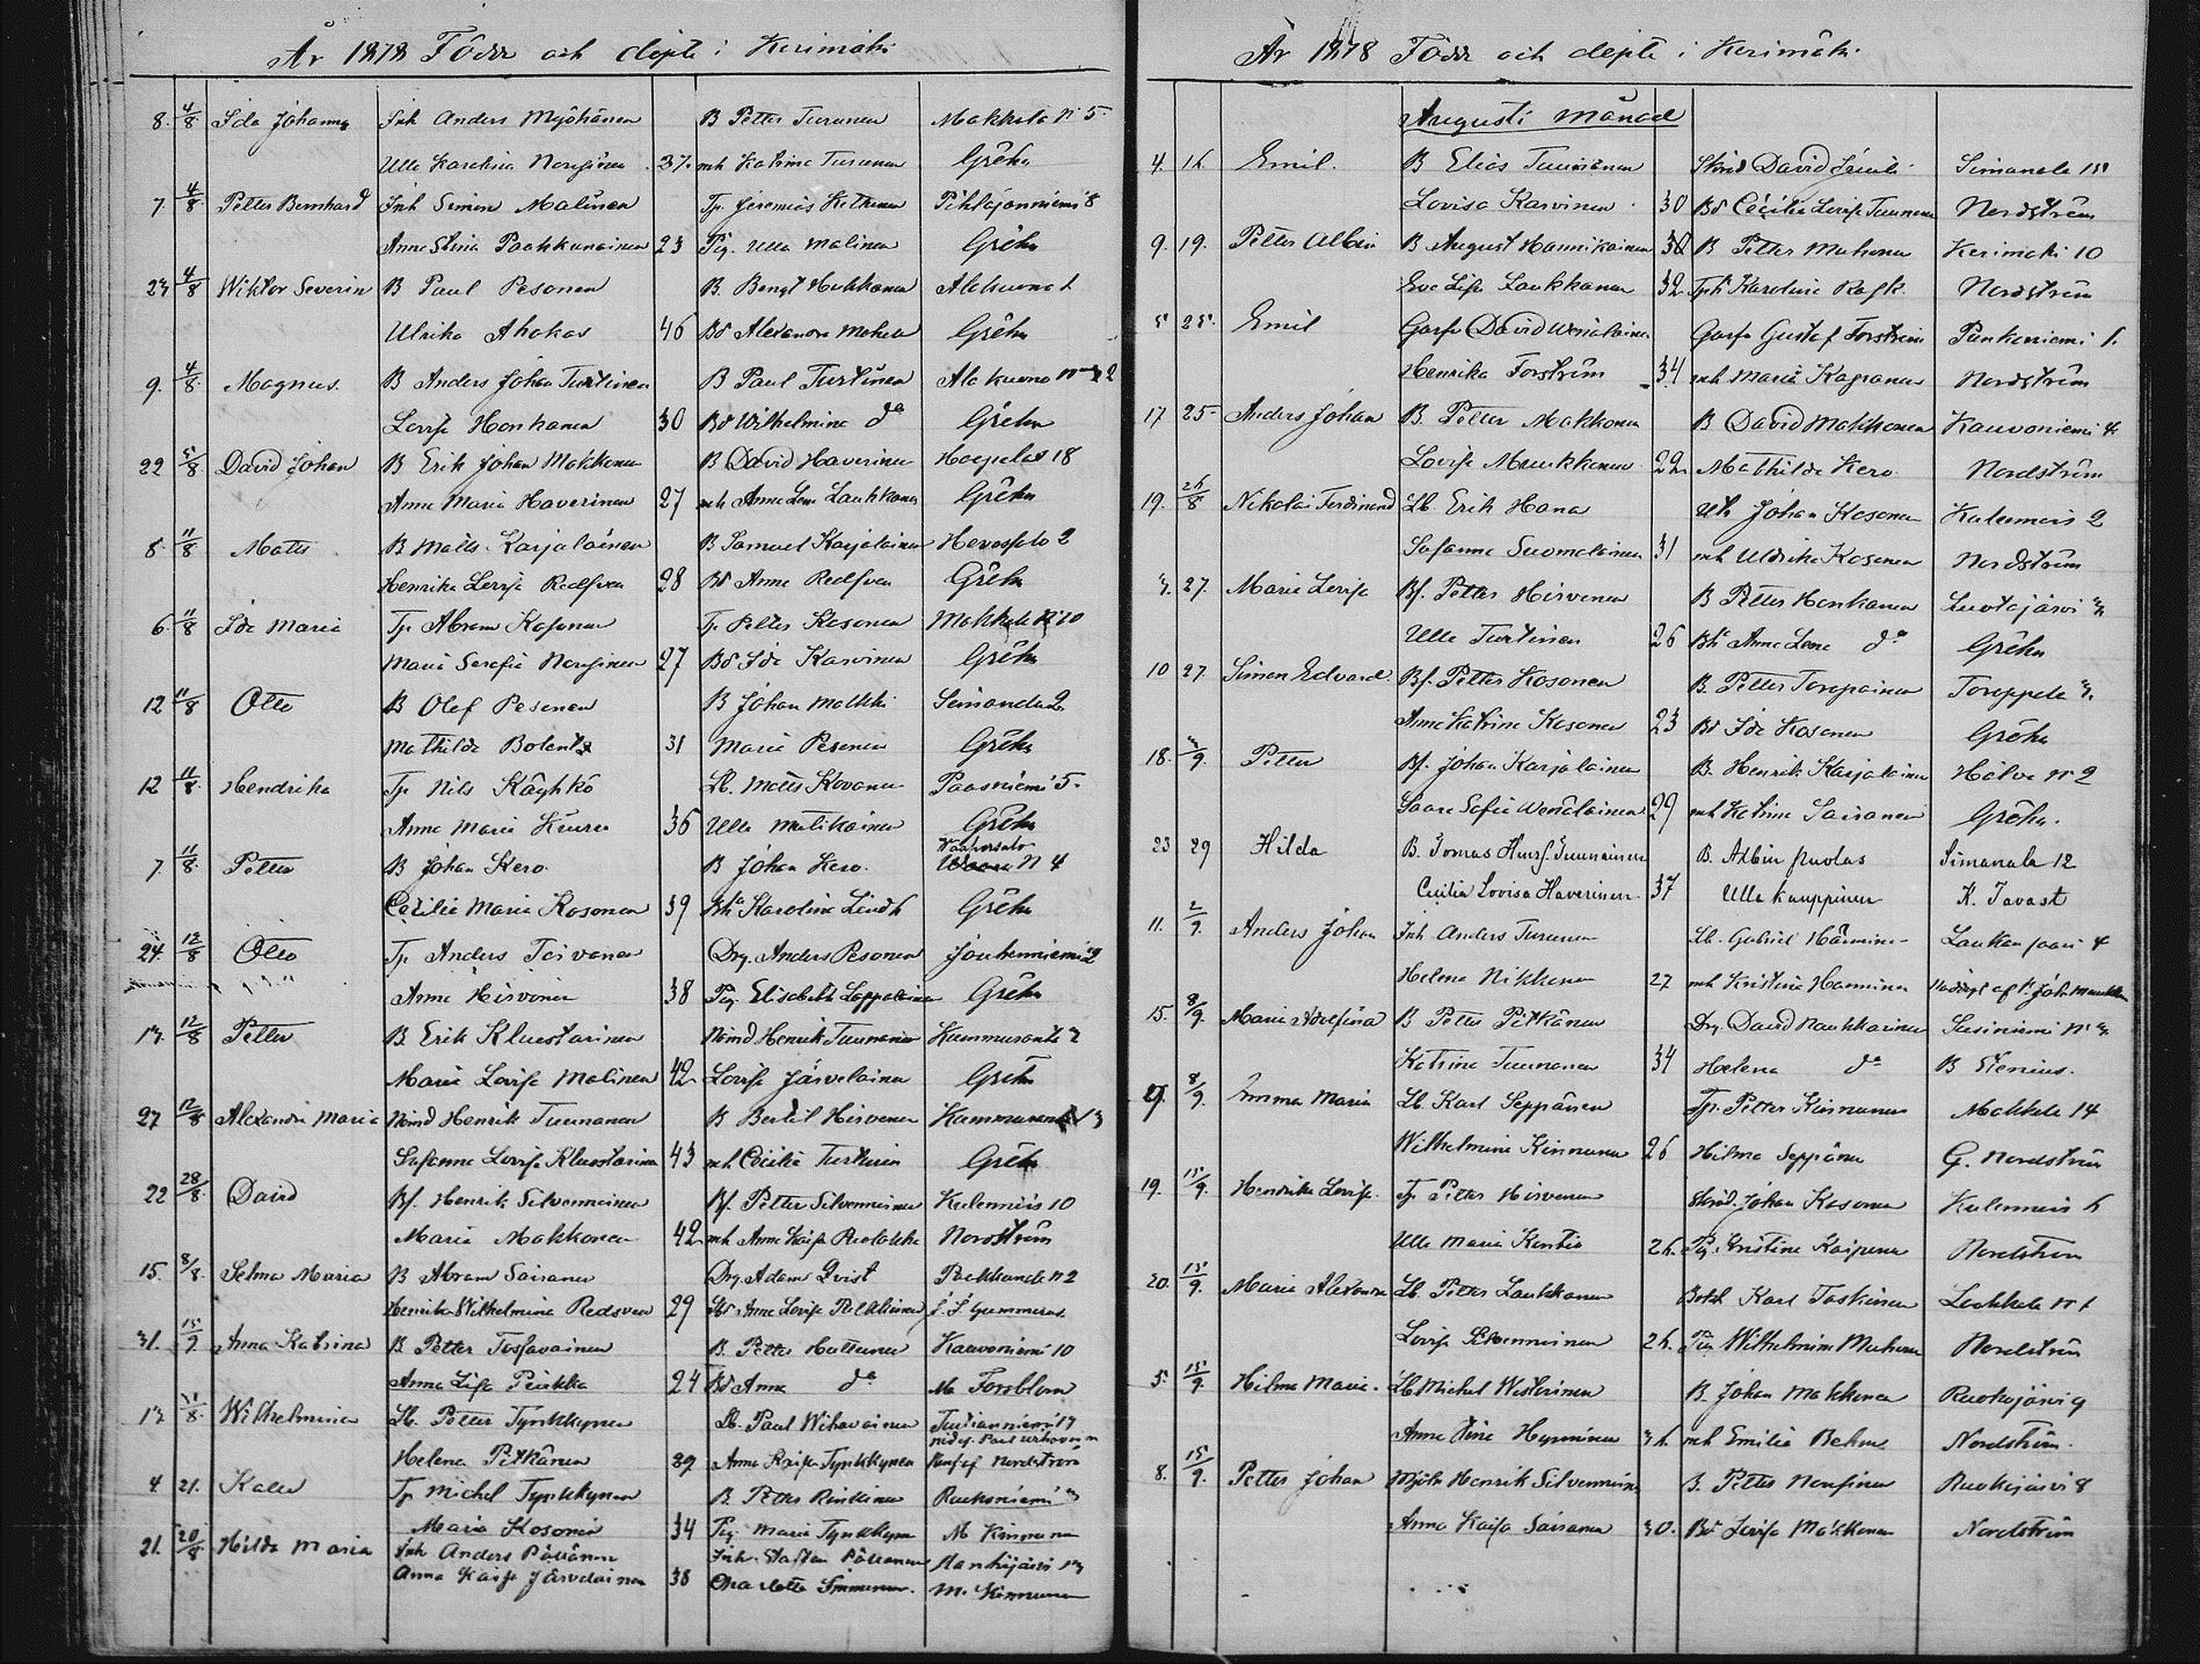 År 1878 Född och döpte i Kerimäki
8. 4/8 Ida Johanna Inh Anders Myöhänen B Petter Turunen Makkola N 5
Ulla Karolina Nousiainen 37 mh Katrina Turunen Gröhn
7. 4/8 Petter Bernhard Inh Simon Malinen Tp. Jeremias Kettunen Pihlajaniemi 8
Anna Stina Paakkunainen 23 Pig. Ulla Malinen Gröhn
23 4/8 Wiktor Severin B Paul Pesonen B. Bengt Hukkanen Alakuona 1
Ulrika Ahokas 46 Bd Alexandra Gröhn
9. 4/8 Magnus. B Anders Johan Turtinen B Paul Turtinen Ala kuona N 2
Lovisa Honkanen 30 Bd Wilhelmina do Gröhn
22 5/8 David Johan B Erik Johan Makkonen B David Haverinen Haapala 18
Anna Maria Haverinen 27 mh Anna Lena Laukkanen Gröhn
8. 11/8 Matts B Matts Karjalainen B Samuel Karjalainen Hevossalo 2
Henrika Lovisa Redsven 28 Bd Anna Redsven Gröhn
6. 11/8 Ida Maria Tp Abram Kosonen Tp Petter Kosonen Makkola N 10
Maria Serafia Nousiainen 27 Bd Ida Karvinen Gröhn
12 11/8 Otto B Olof Pesonen B Johan Malkki Simanala 2
Mathilda 31 Maria Pesonen Gröhn
12 11/8 Hendrika Tp Nils Käyhkö Lb. Matts Kovanen Paasniemi 5.
Anna Maria 36 Ulla Matikainen Gröhn
7. 11/8 Petter B Johan Kero. B Johan Kero. N 4
Cecilia Maria Kosonen 39 Bha Karolina Lindh Gröhn
24. 12/8 Otto Tp Anders Toivanen Drg. Anders Pesonen Jouhenniemi 2
Anna Hirvonen 38 Pig. Elisabeth Lappalainen Gröhn
13. 12/8 Petter B. Erik Kluustarinen Nämd Henrik Tuunanen Kummuranta 2
Maria Lovisa Malinen 42 Lovisa Järvelainen Gröhn
27 12/8 Alexandra Maria Nämd Henrik Tuunanen B Bertil Hirvonen Kummuranta 3
Susanna Lovisa Kluustarinen 43 mh Cecilia Turtinen Gröhn
22 28/8 David Bf. Henrik Silvennoinen Bf. Petter Silvennoinen Kulennois 10
Maria Makkonen 42 mh Anna Kaisa Nordström
15. 8/8 Selma Maria B Abram Sairanen Drg Adam Qvist N 2
Henrika Wilhelmina Redsven 29 Anna Lovisa Pelkkinen
31. 15/9 Anna Katrina B Petter Tossavainen B. Petter Kauvoniemi 10
Anna Lisa Pirkka 24 Bd Anna do M Forsblom
13 Wilhelmina Lb. Petter Tynkkynen Lb. Paul Wihavainen
Helena Pitkänen 29 Anna Kaisa Tynkkynen Nordström
4 21. Kalle Tp Michel Tynkkynen B. Petter Rinkinen
Maria Kosonen 34 Pig Maria Tynkkynen M Kinnunen
21. 20/8 Hilda Maria Inh Anders Pöllänen Inh. Staffan Pöllänen
Anna Kaisa Järvelainen 38 Charlotta M. Kinnunen
År 1878 Född och döpte i Kerimäki
Augusti Månad
4. 16 Emil. B Elias Tuunanen David Simanala
Lovisa Karvinen 30 Bd Cecilia Lovisa Tuunanen Nordström
9. 19. Petter Albin B August Hannikainen 38 B Petter Muhonen Kerimäki 10
Eva Lisa Laukkanen 32 Karolina Nordström
5 25. Emil Garfv David Wenäläinen Garfv Gustaf Forström Punkaniemi 1.
Henrika Forström 34 mh Maria Nordström
17 25 Anders Johan B. Petter Makkonen B David Makkonen Kauvoniemi 4.
Lovisa Muukkonen 22 Mathilda Kero Nordström
19. 26/8 Nikolai Ferdinand Lb. Erik Johan Kosonen Kulennois 2
Susanna Suomalainen 31 mh Uldrika Kosonen Nordström
3. 27. Maria Lovisa Bf. Petter Hirvonen B Petter Honkanen Luotojärvi 3
Ulla Turtinen 26 Bha Anna Lena do Gröhn
10 27. Simon Edvard. Bf. Petter Kosonen B. Petter Toropainen Toroppala 3.
Anna Katrina Kosonen 23 Bd Ida Kosonen Gröhn
18. 9. Petter Bf. Johan Karjalainen B. Henrik Karjalainen Hälvä N 2
Saara Sofia Wenäläinen 29 mh Katrina Sairanen Gröhn.
23 29 Hilda B. Tomas Tuunainen B. Albin Puolas Simanala 12
Cecilia Lovisa Haverinen 37 Ulla Kauppinen K. Tavast
11. 2/9. Anders Johan Inh Anders Turunen Lb. Gabriel Hänninen 4
Helena Nikkonen 27 mh Kristina Hänninen
15. 8/9. Maria Adolfina B Petter Pitkänen Drg. David Naukkarinen Susiniemi N 3
Katrina Tuunanen 34 Helena do B Stenius.
29. 8/9. Emma Maria Lb. Karl Seppänen Tp. Petter Kinnunen Makkola 14
Wilhelmina Kinnunen 26 Hilma Seppänen G. Nordström
19. 15/9. Hendrika Lovisa Tp Petter Hirvonen Johan Kosonen Kulennois 6
Ulla Maria Kontio 26. Pig. Kristina Kaipanen Nordström
20. 15/9. Maria Alexandra Lb. Petter Laukkanen Karl Taskinen N 1
Lovisa Silvennoinen 26. Pig Wilhelmina Muhonen Nordström
5. 15/9. Hilma Maria. Lb Michel Westerinen B. Johan Makkonen Ruokojärvi 9
Anna Stina Hyvönen 36. mh Emilia Nordström.
8. 15/9. Petter Johan Mjöln Henrik Silvennoinen B. Petter Nousiainen Ruokojärvi 8
Anna Kaisa Sairanen 30. Bd Lovisa Makkonen Nordström